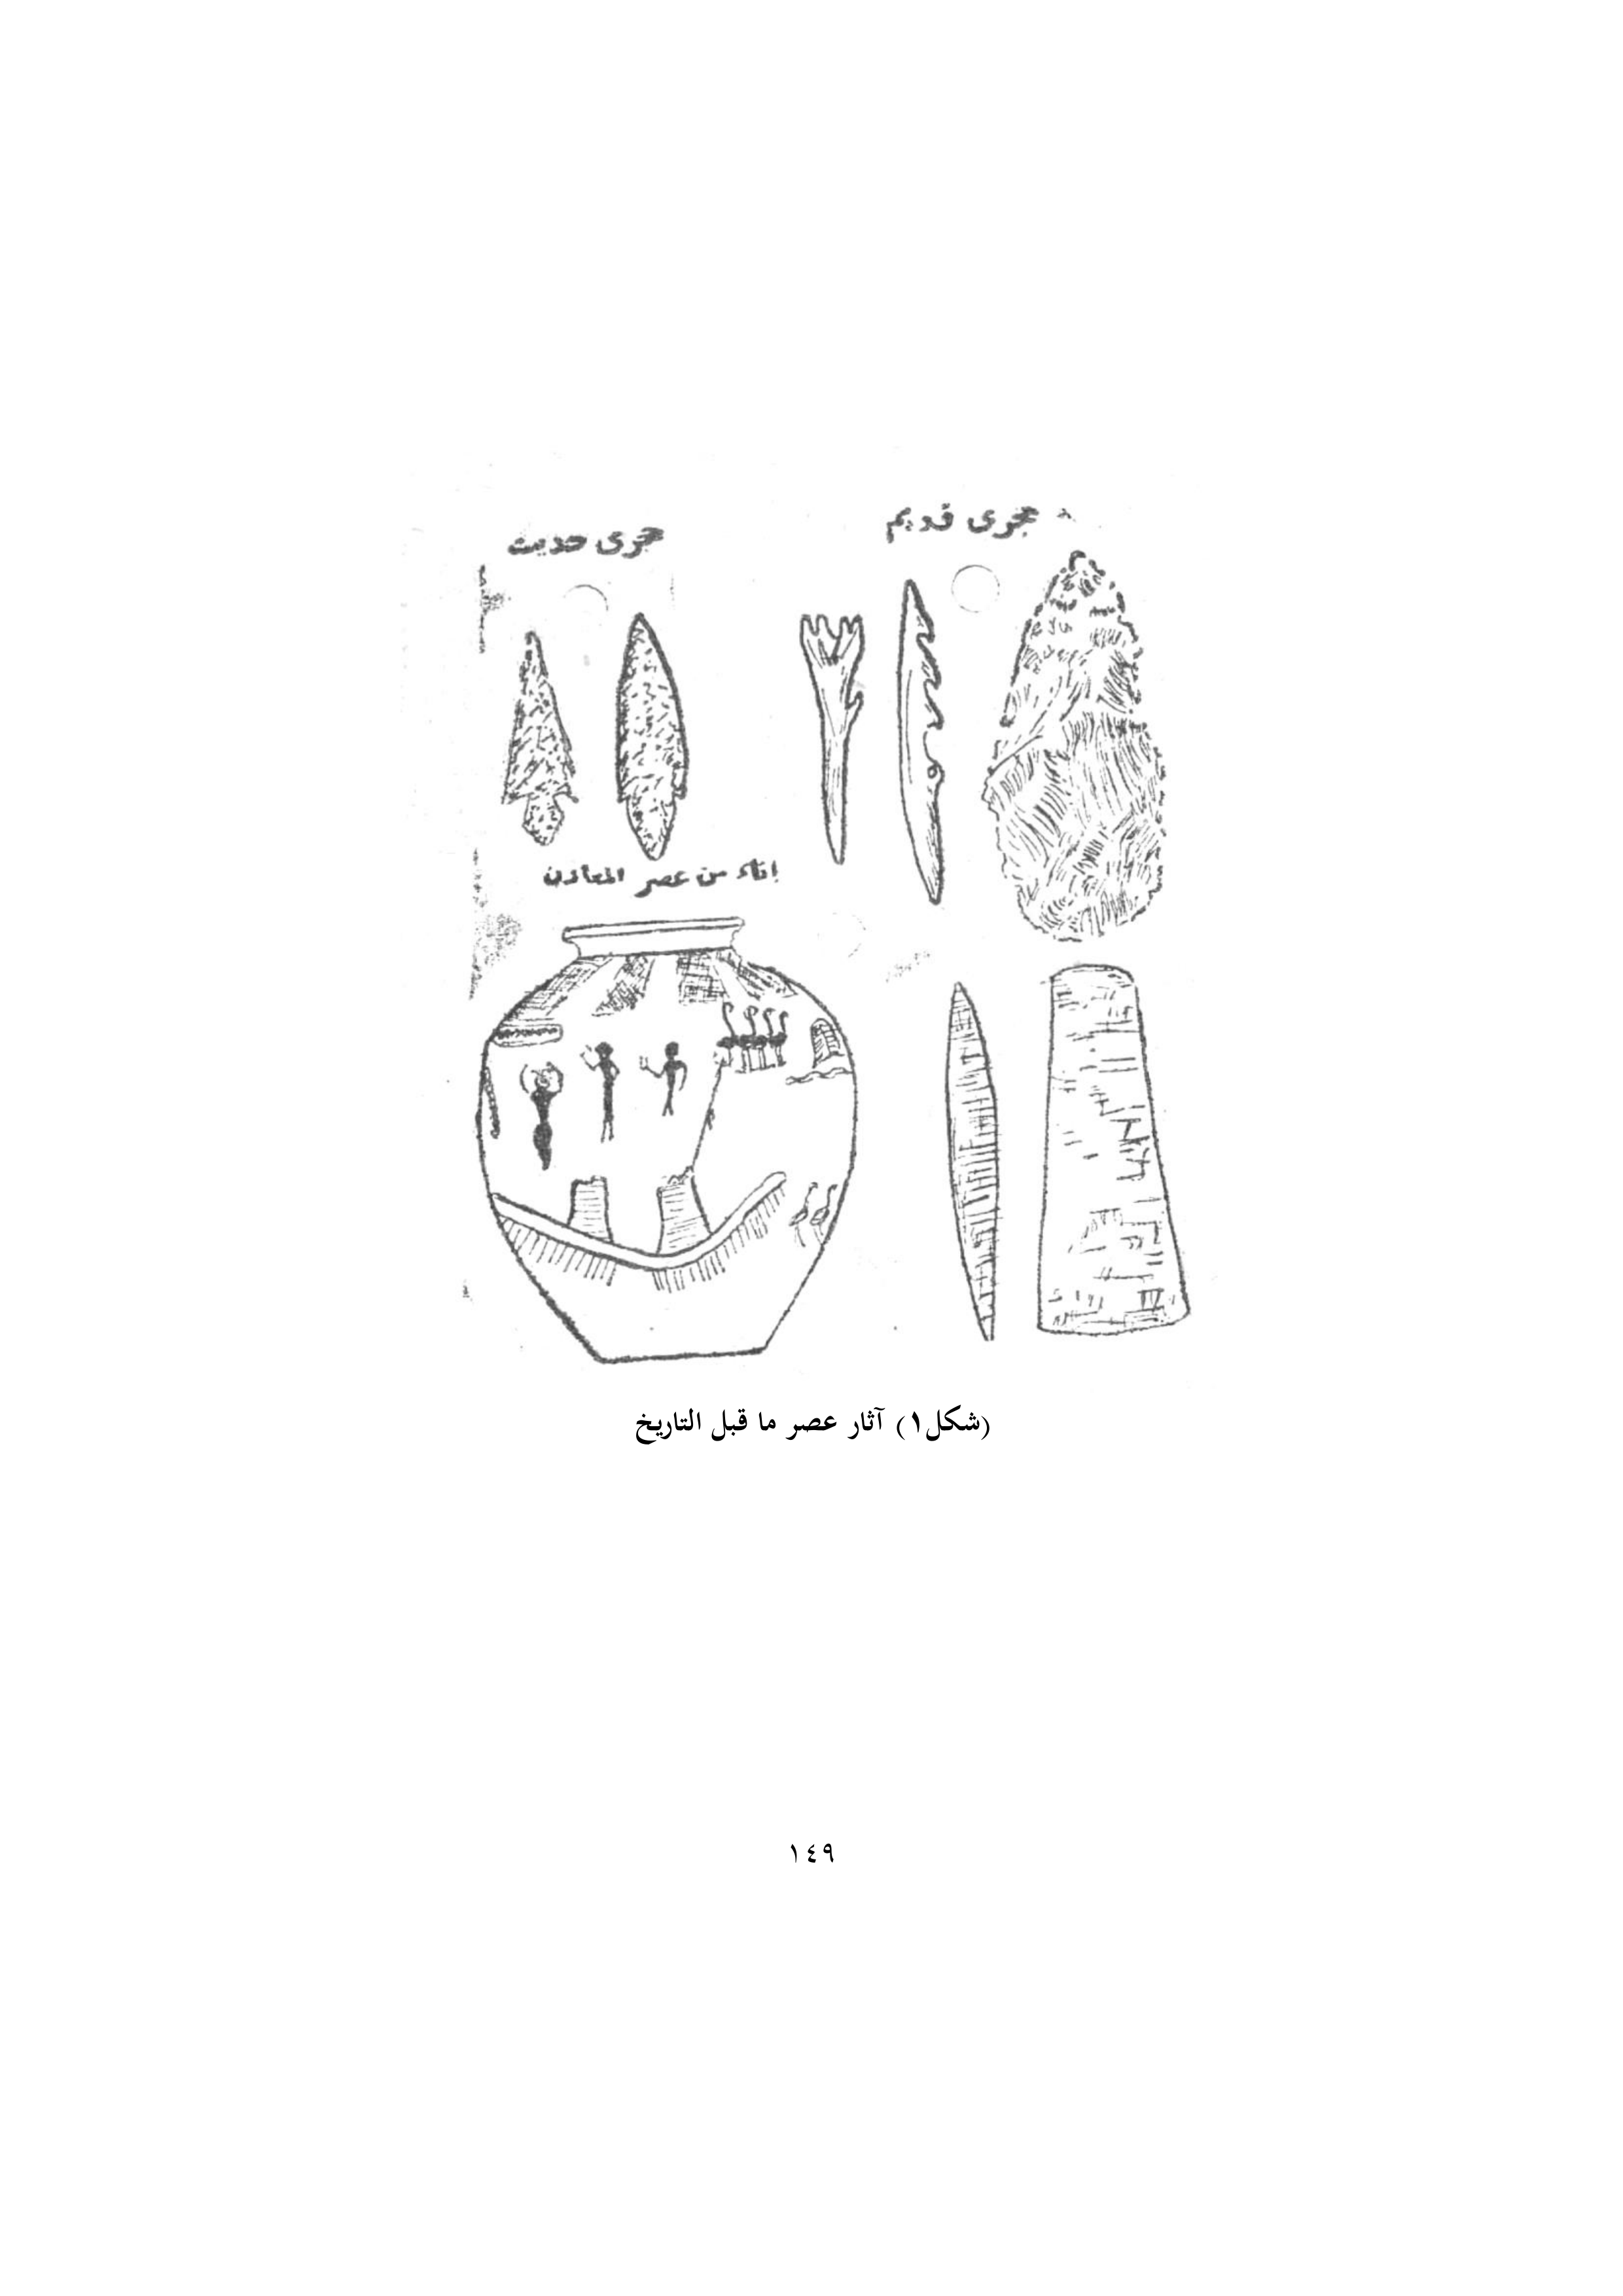 حجرى قديم
حجرى حديث
إناء من عصر المعادن
(شكل١) آثار عصر ما قبل التاريخ
١٤٩